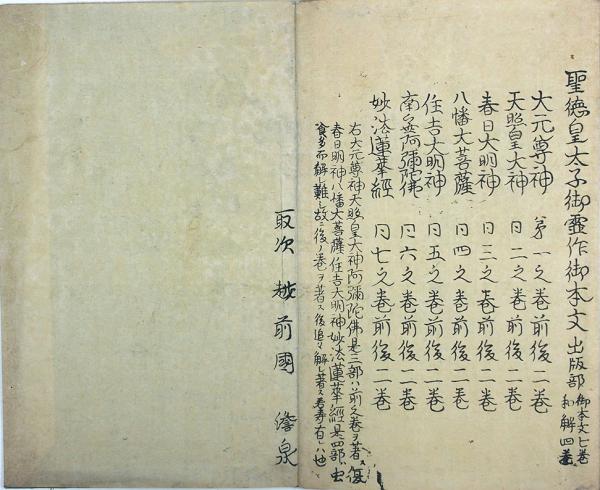 聖德皇太子御靈作御本文 出版部 御本文七巻 和解四巻
大元尊神 第一之巻前後二巻
天照皇大神 同二之巻前後二巻
春日大明神 同三之巻前後二巻
八幡大菩薩 同四之巻前後二巻
住吉大明神 同五之巻前後二巻
南無阿彌陀佛 同六之巻前後二巻
妙法蓮華經 同七之巻前後二巻
右大元尊神天照皇大神阿彌陀佛是三部ハ前之巻ヲ著ス
春日明神八幡大菩薩住吉大明神妙法蓮華經是四部ハ
多而解シ難シ故ニ後ノ巻ヲ著ス後追々解シ著ス
取次 越前國